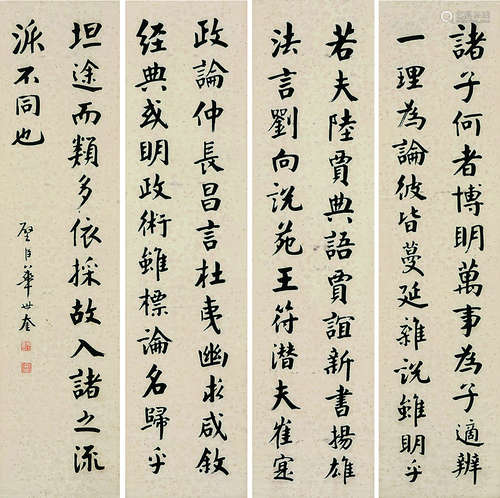 諸子何者博明萬事為子適辨
一理為論彼皆蔓延雜說雖明乎
若夫陸賈典語賈誼新書揚雄
法言劉向說苑王符潜夫崔寔
政論仲長昌言杜夷幽求咸敘
經典或明政術雖標論名歸乎
坦途而類多依採故入諸之流
派不同也
臣華世奎